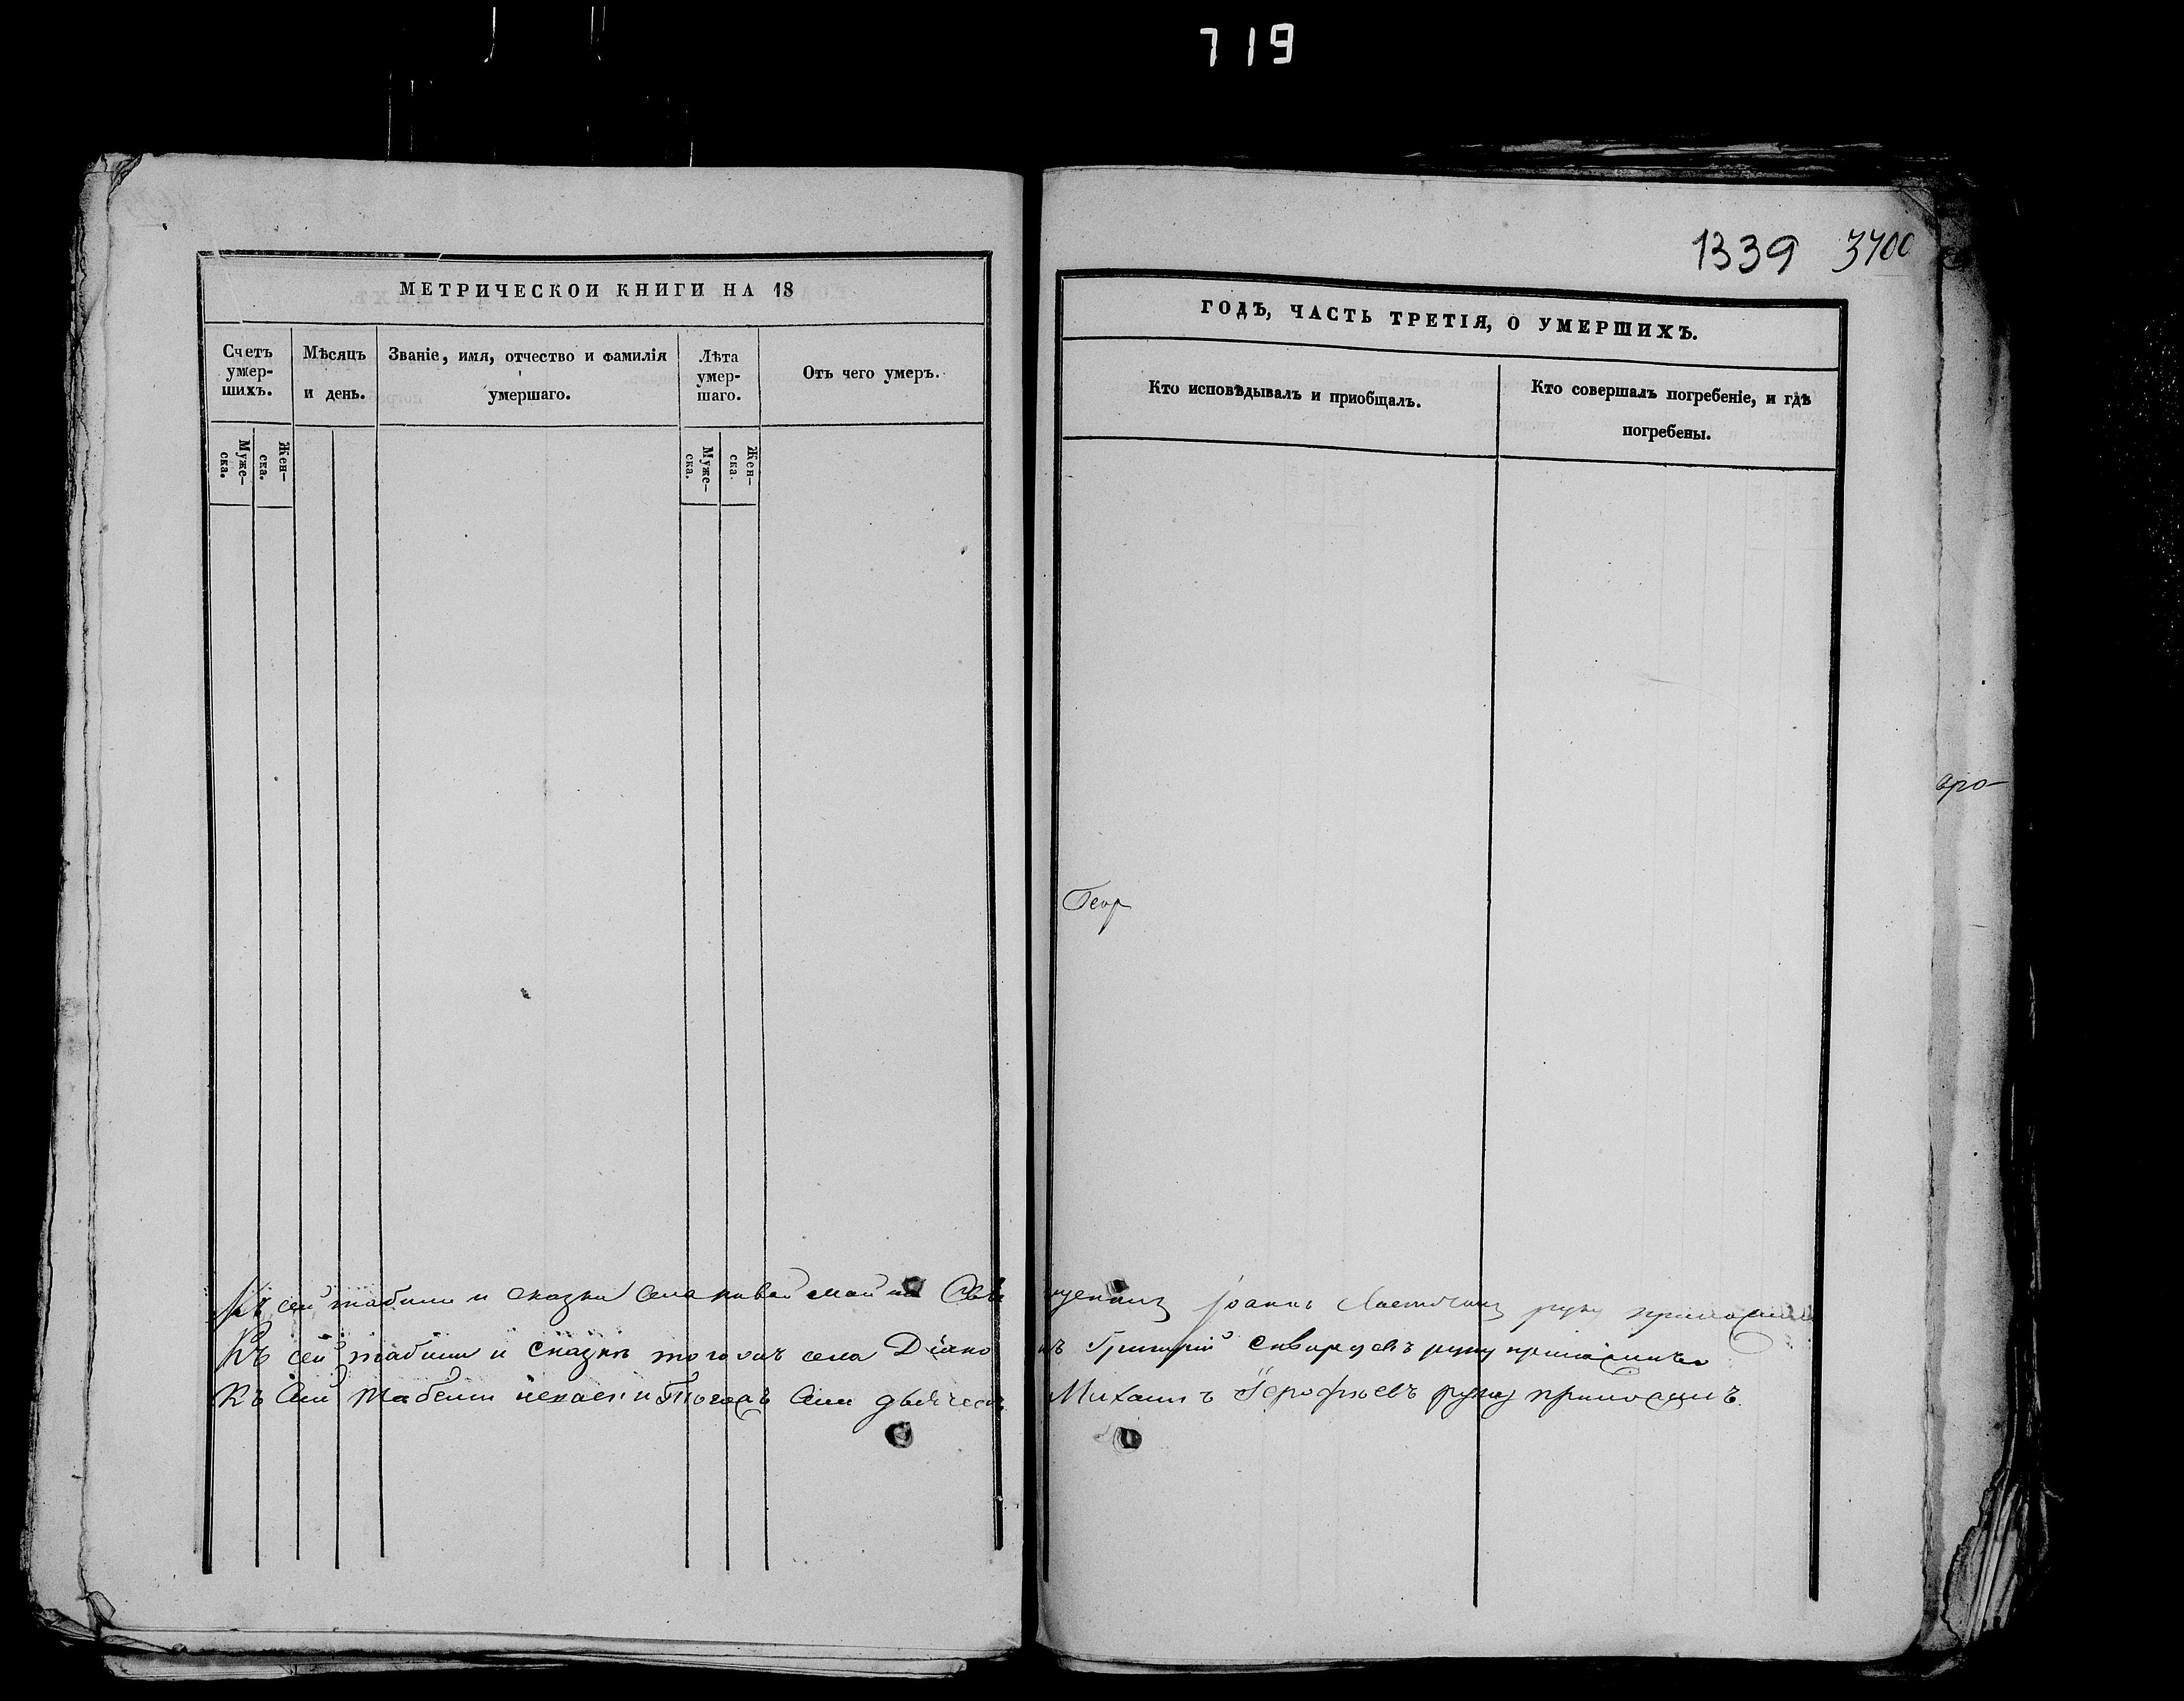 719
1339 3700
МЕТРИЧЕСКОЙ КНИГИ НА 18
Счетъ умер-
шихъ.
Мѣсяцъ
и день.
Званіе, имя, отчество и фамилія
умершаго.
Лѣта
умер-
шаго.
Отъ чего умеръ.
Муже-
ска.
Жен-
ска.
Муже-
ска.
Жен-
ска.
ГОДЪ, ЧАСТЬ ТРЕТІЯ, О УМЕРШИХЪ.
Кто исповѣдывалъ и приобщалъ.
Кто совершалъ погребеніе, и гдѣ
погребены.
Геор
Къ сей табели и сказки села новой майны Свя щенникъ Іоаннъ руку приложилъ
Къ сей табели и сказкѣ того жъ села Діако нъ Григорій руку приложилъ
Къ сей табели и того жъ села дьячекъ Михаилъ Іерофѣевъ руку приложилъ